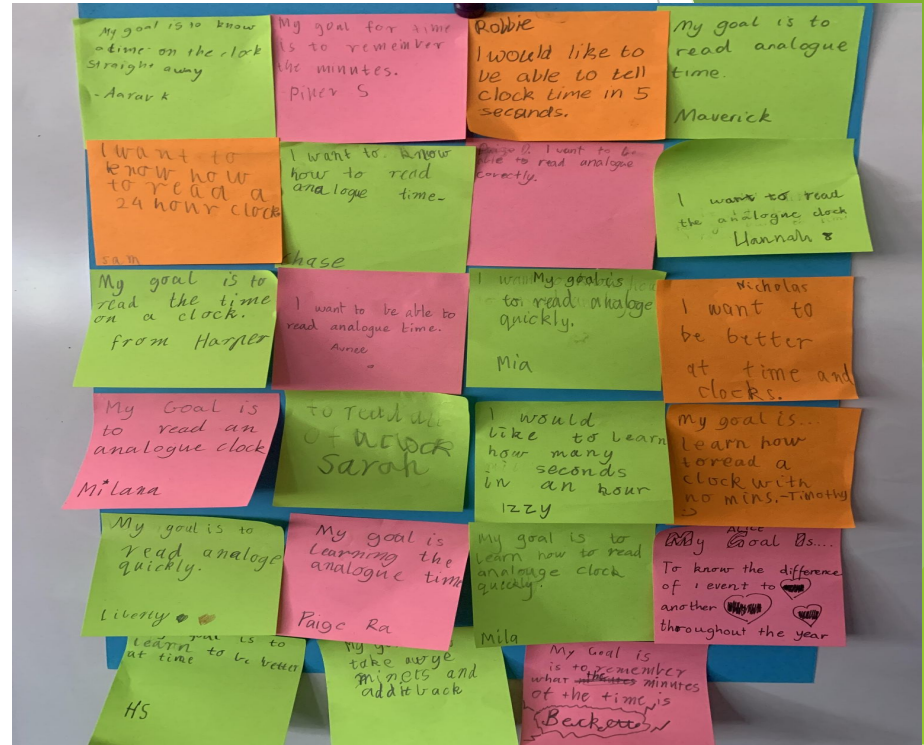 My goal is to know
a time on the clock
straight away
-Aarav K
My goal for time
is to remember
the minutes.
-Piper S
Robbie
I would like to
be able to tell
clock time in 5
seconds.
My goal is to
read analogue
time.
Maverick
I want to
know how
to read a
24 hour clock
sam
I want to know
how to read
analogue time.
chase
I want to be
able to read analogue
correctly.
I want to read
the analogue clock
Hannah 8
My goal is to
read the time
on a clock.
from Harper
I want to be able to
read analogue time.
My goal is
to read analoge
quickly.
Mia
Nicholas
I want to
be better
at time and
clocks.
My Goal is
to read an
analogue clock
Milana
to read
clock
Sarah
I would
like to learn
how many
seconds
in an hour
Izzy
My goal is...
learn how
to read a
clock with
no mins.-Timothy
My goal is to
read analoge
quickly.
Liberty
My goal is
learning the
analogue time
Paige Ra
My goal is to
learn how to read
analouge clock
quickly.
Mila
ALICE
My Goal Is....
To know the difference
of 1 event to
another
throughout the year
goal is to
learn to be better
at time
HS
take awye
minets and
addit back
My Goal is
is to remember
what minutes
of the time is
Beckett